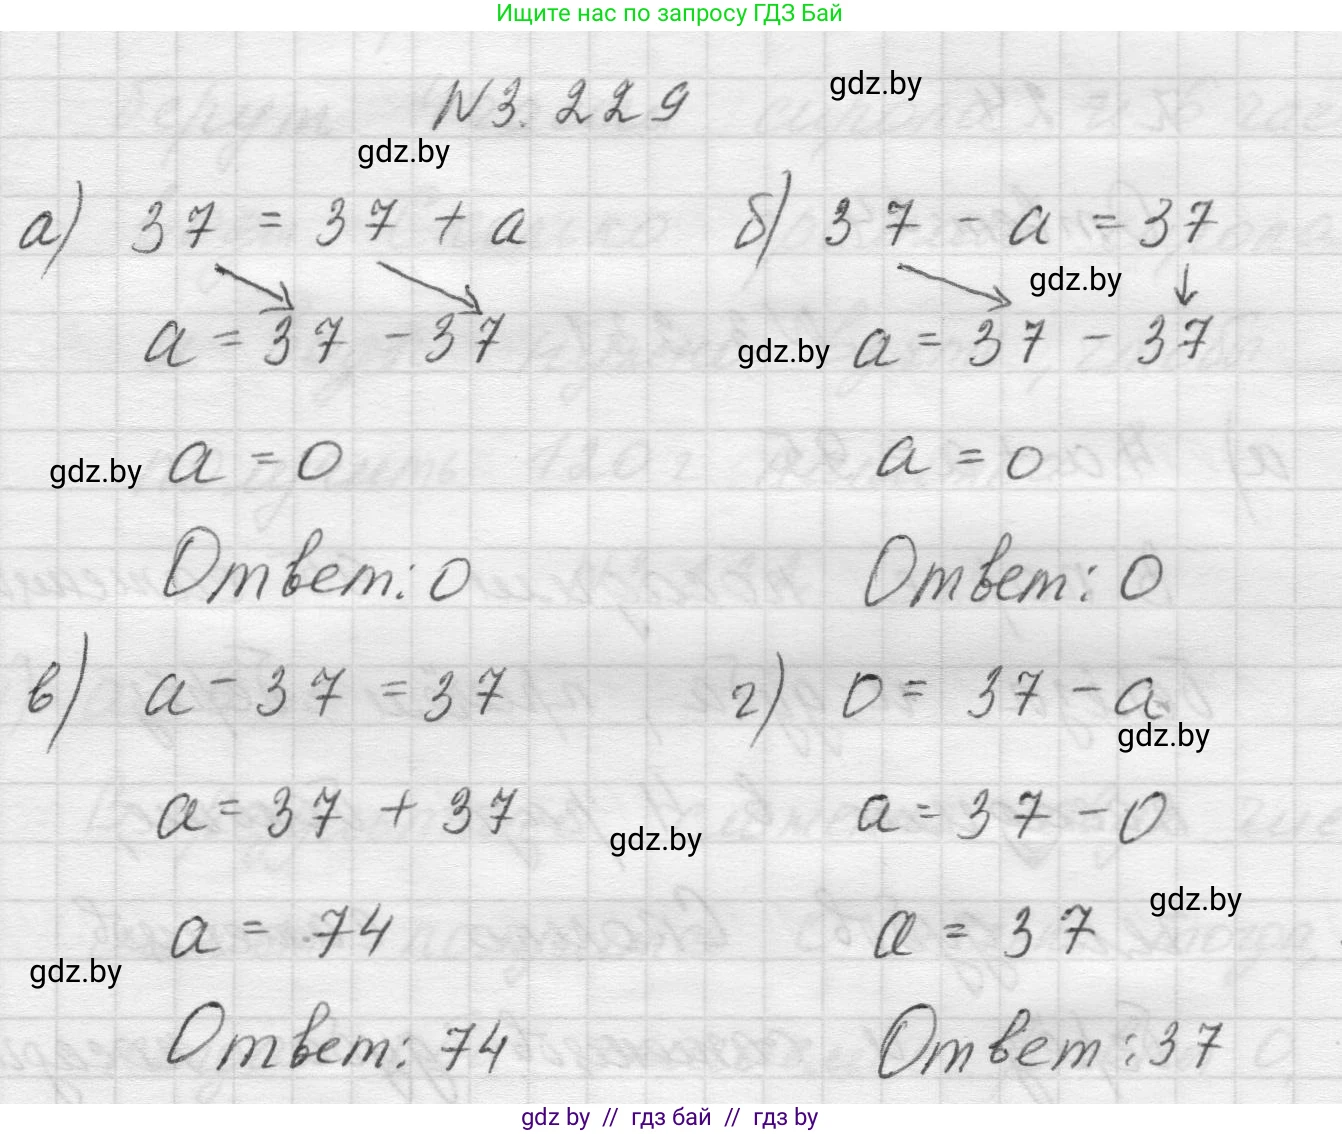 Ищите нас по запросу ГДЗ Бай
N 3. 229
gdz.by
gdz.by
а) 37 = 37 + a
б) 37 - a = 37
gdz.by
a = 37 - 37
gdz.by
a = 37 - 37
gdz.by
a = 0
a = 0
Ответ: 0
Ответ: 0
в) a - 37 = 37
г) 0 = 37 - a
gdz.by
a = 37 + 37
a = 37 - 0
gdz.by
gdz.by
a = 74
a = 37
gdz.by
Ответ: 74
Ответ: 37
gdz by // гдз бай // гдз by